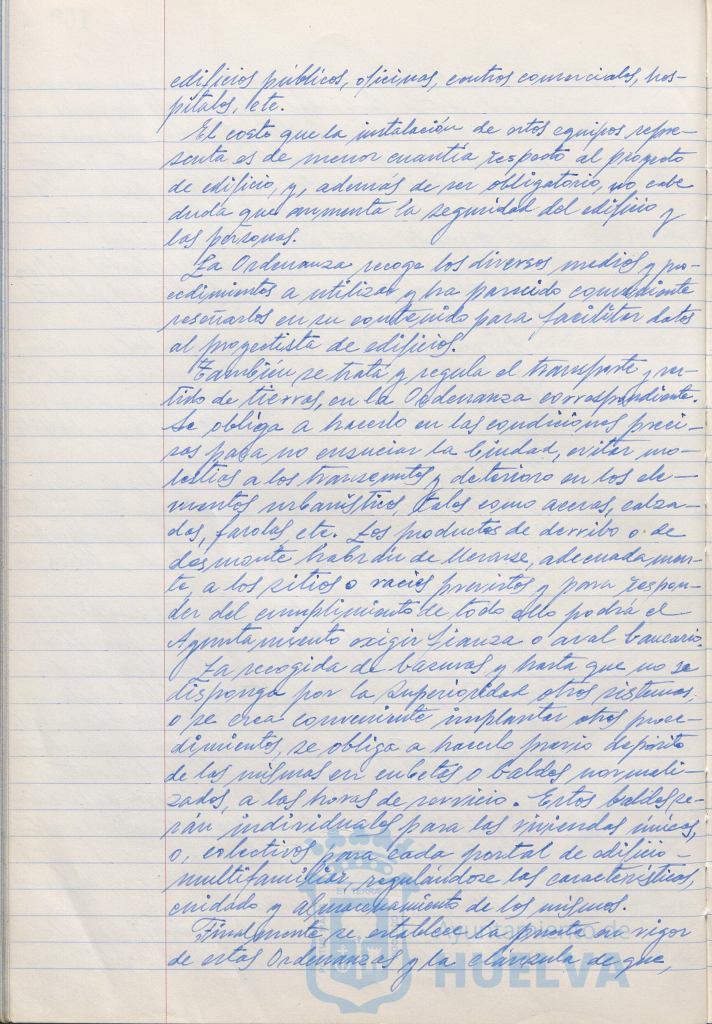 edificios públicos, oficinas, centros comerciales, hos-
pitales, etc.
El coste que la instalación de estos equipos repre-
senta es de menor cuantía respecto al proyecto
de edificio, y, además de ser obligatorio, no cabe
duda que aumenta la seguridad del edificio y
las personas.
La Ordenanza recoge los diversos medios y pro-
cedimientos a utilizar y ha parecido conveniente
reseñarlos en su contenido para facilitar datos
al proyectista de edificios.
También se trata y regula el transporte y ver-
tido de tierras, en la Ordenanza correspondiente.
Se obliga a hacerlo en las condiciones preci-
sas para no ensuciar la Ciudad, evitar mo-
lestias a los transeuntes y deterioro en los ele-
mentos urbanísticos, tales como aceras, calza-
das, farolas, etc. Los productos de derribo o de
desmonte habrán de llevarse, adecuadamen-
te, a los sitios o vacíes previstos y para respon-
der del cumplimiento de todo ello podrá el
Ayuntamiento exigir fianza o aval bancario.
La recogida de basuras, y hasta que no se
disponga por la Superioridad otros sistemas,
o se crea conveniente implantar otros proce-
dimientos, se obliga a hacerlo previo depósito
de las mismas en cubetas o baldes normali-
zados, a las horas de servicio. Estos baldes se-
rán individuales para las viviendas únicas,
o, colectivos para cada portal de edificio -
multifamiliar, regulándose las características,
cuidado y almacenamiento de los mismos.
Finalmente se establece la puesta en vigor
de estas Ordenanzas y la cláusula de que,
Ayuntamiento de
HUELVA